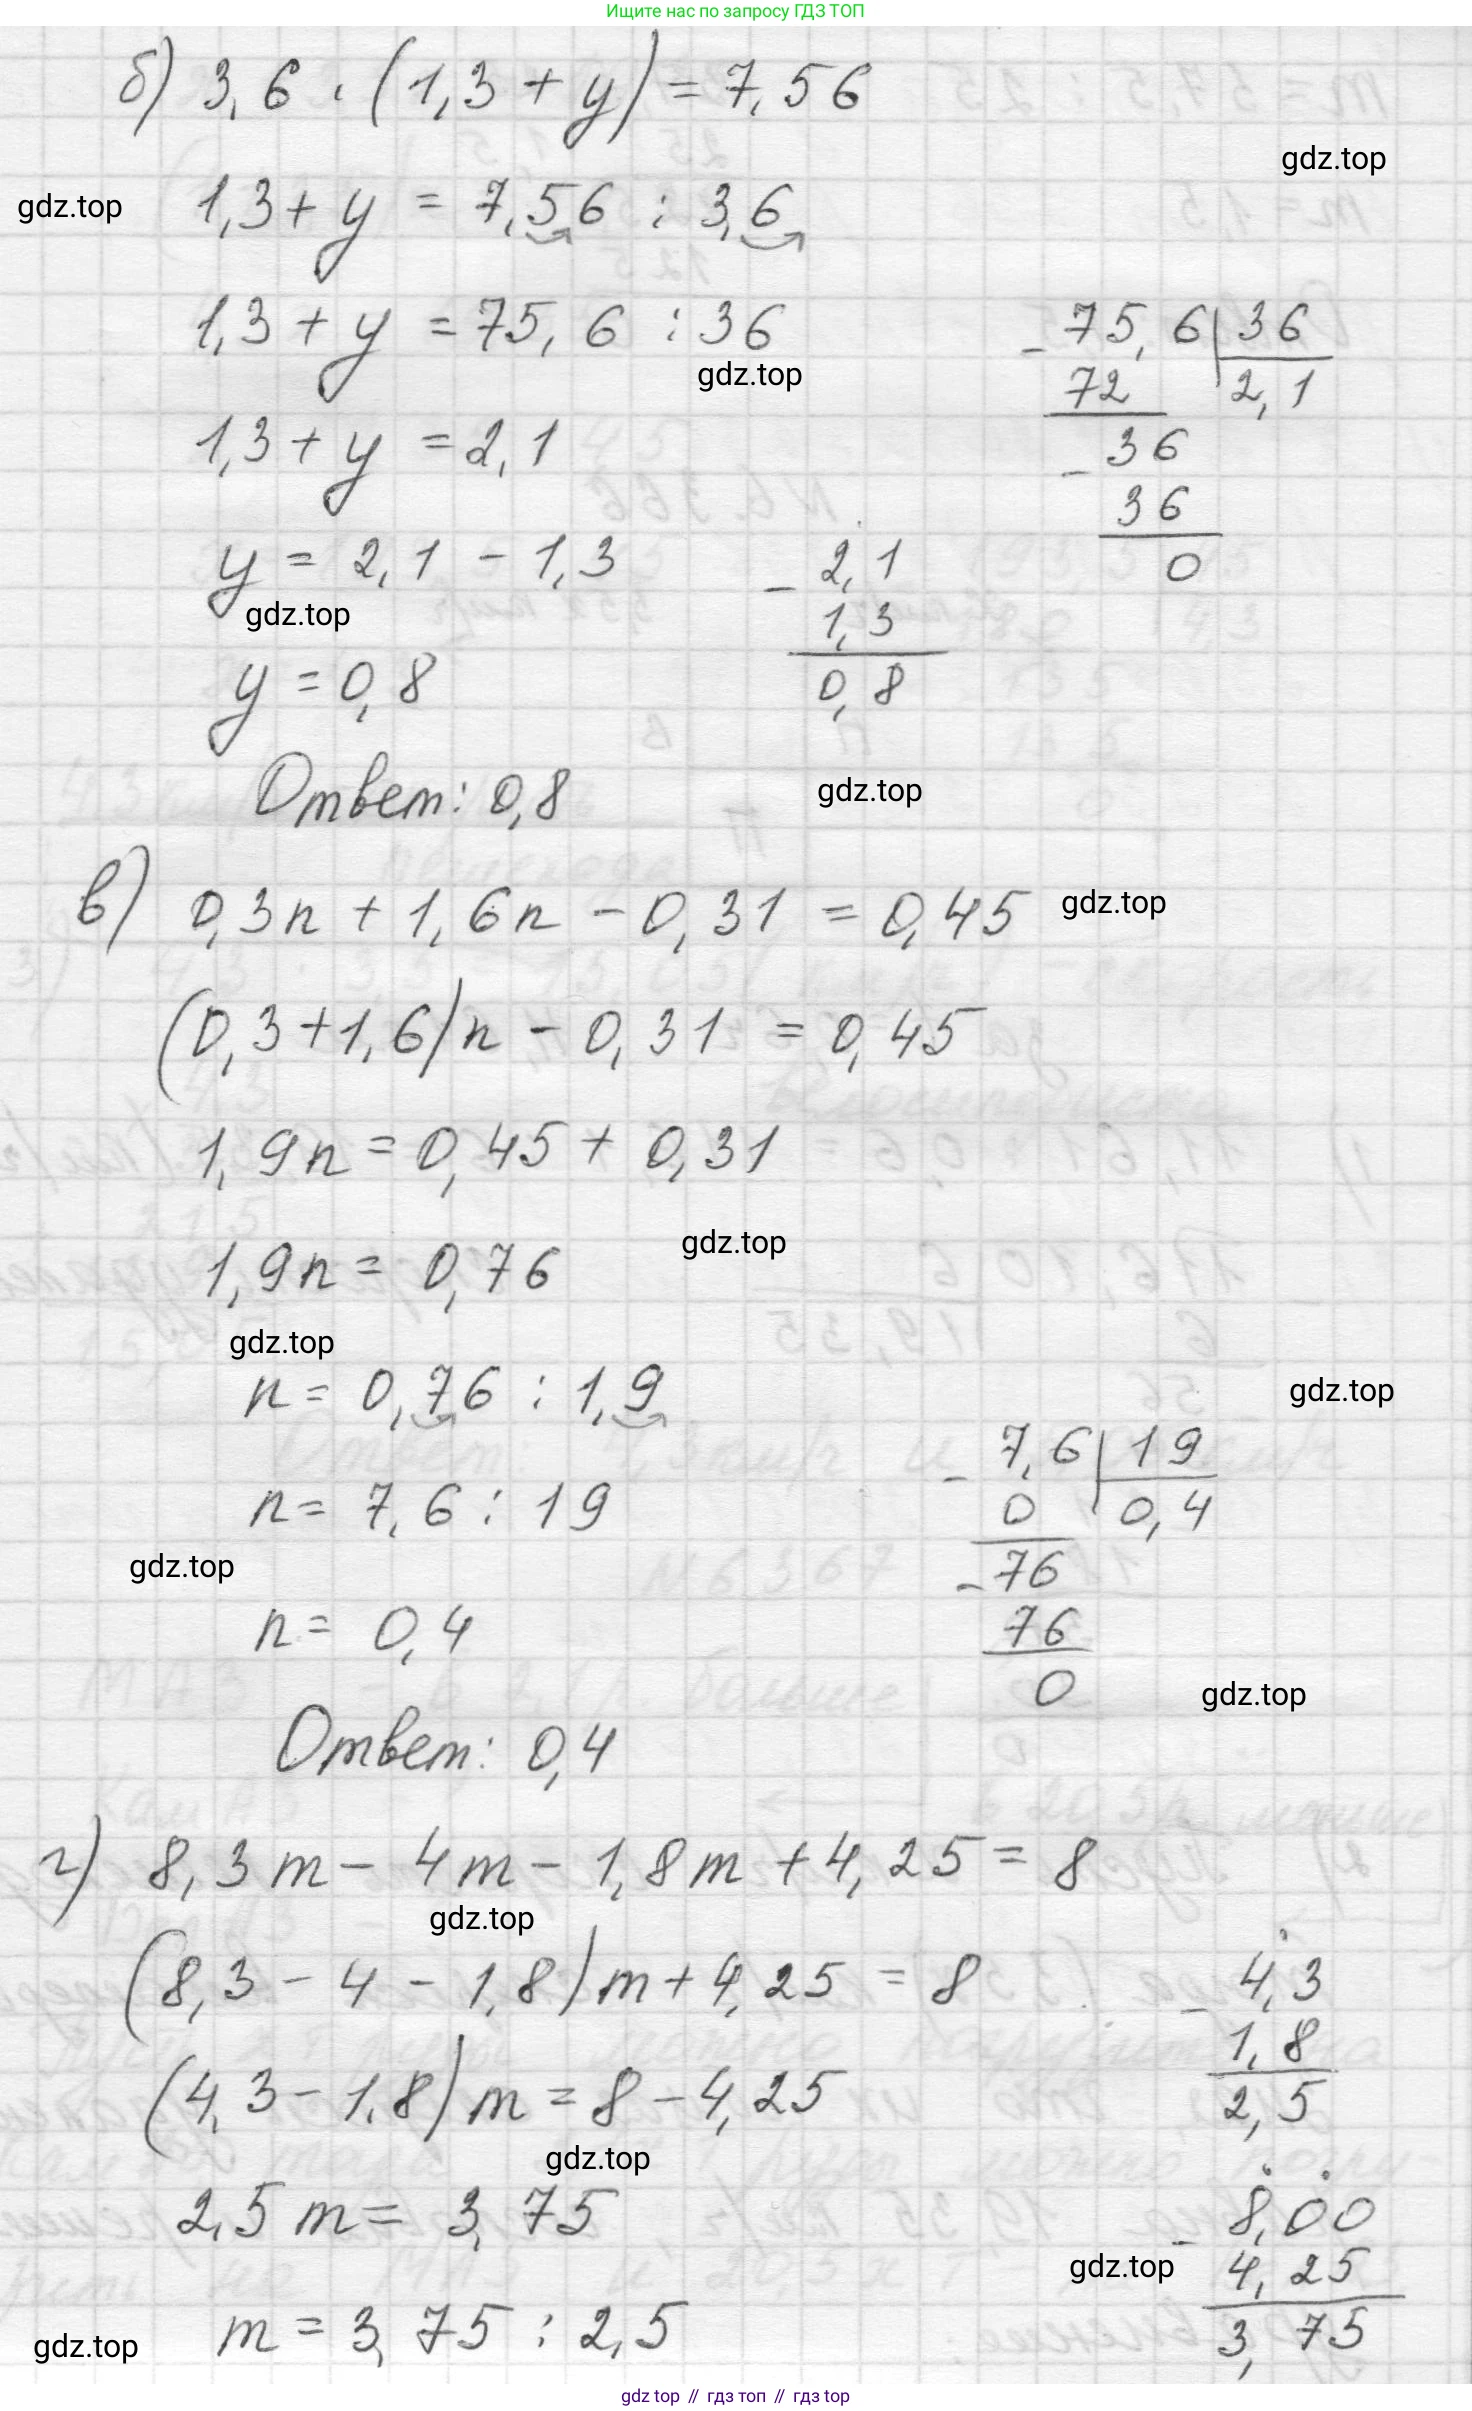 Ищите нас по запросу ГДЗ ТОП
б) 3,6 · (1,3 + y) = 7,56
gdz.top
gdz.top
1,3 + y = 7,56 : 3,6
1,3 + y = 75,6 : 36
- 75,6 | 36
gdz.top
72 2,1
1,3 + y = 2,1
- 36
36
0
y = 2,1 - 1,3
- 2,1
gdz.top
1,3
y = 0,8
0,8
Ответ: 0,8
gdz.top
в) 0,3n + 1,6n - 0,31 = 0,45
gdz.top
(0,3 + 1,6)n - 0,31 = 0,45
1,9n = 0,45 + 0,31
gdz.top
1,9n = 0,76
gdz.top
n = 0,76 : 1,9
gdz.top
- 7,6 | 19
n = 7,6 : 19
0 0,4
gdz.top
- 76
n = 0,4
76
0
gdz.top
Ответ: 0,4
г) 8,3m - 4m - 1,8m + 4,25 = 8
gdz.top
(8,3 - 4 - 1,8)m + 4,25 = 8
- 4,3
1,8
2,5
(4,3 - 1,8)m = 8 - 4,25
gdz.top
2,5m = 3,75
- 8,00
gdz.top
4,25
3,75
m = 3,75 : 2,5
gdz.top
gdz top // гдз топ // gdz top